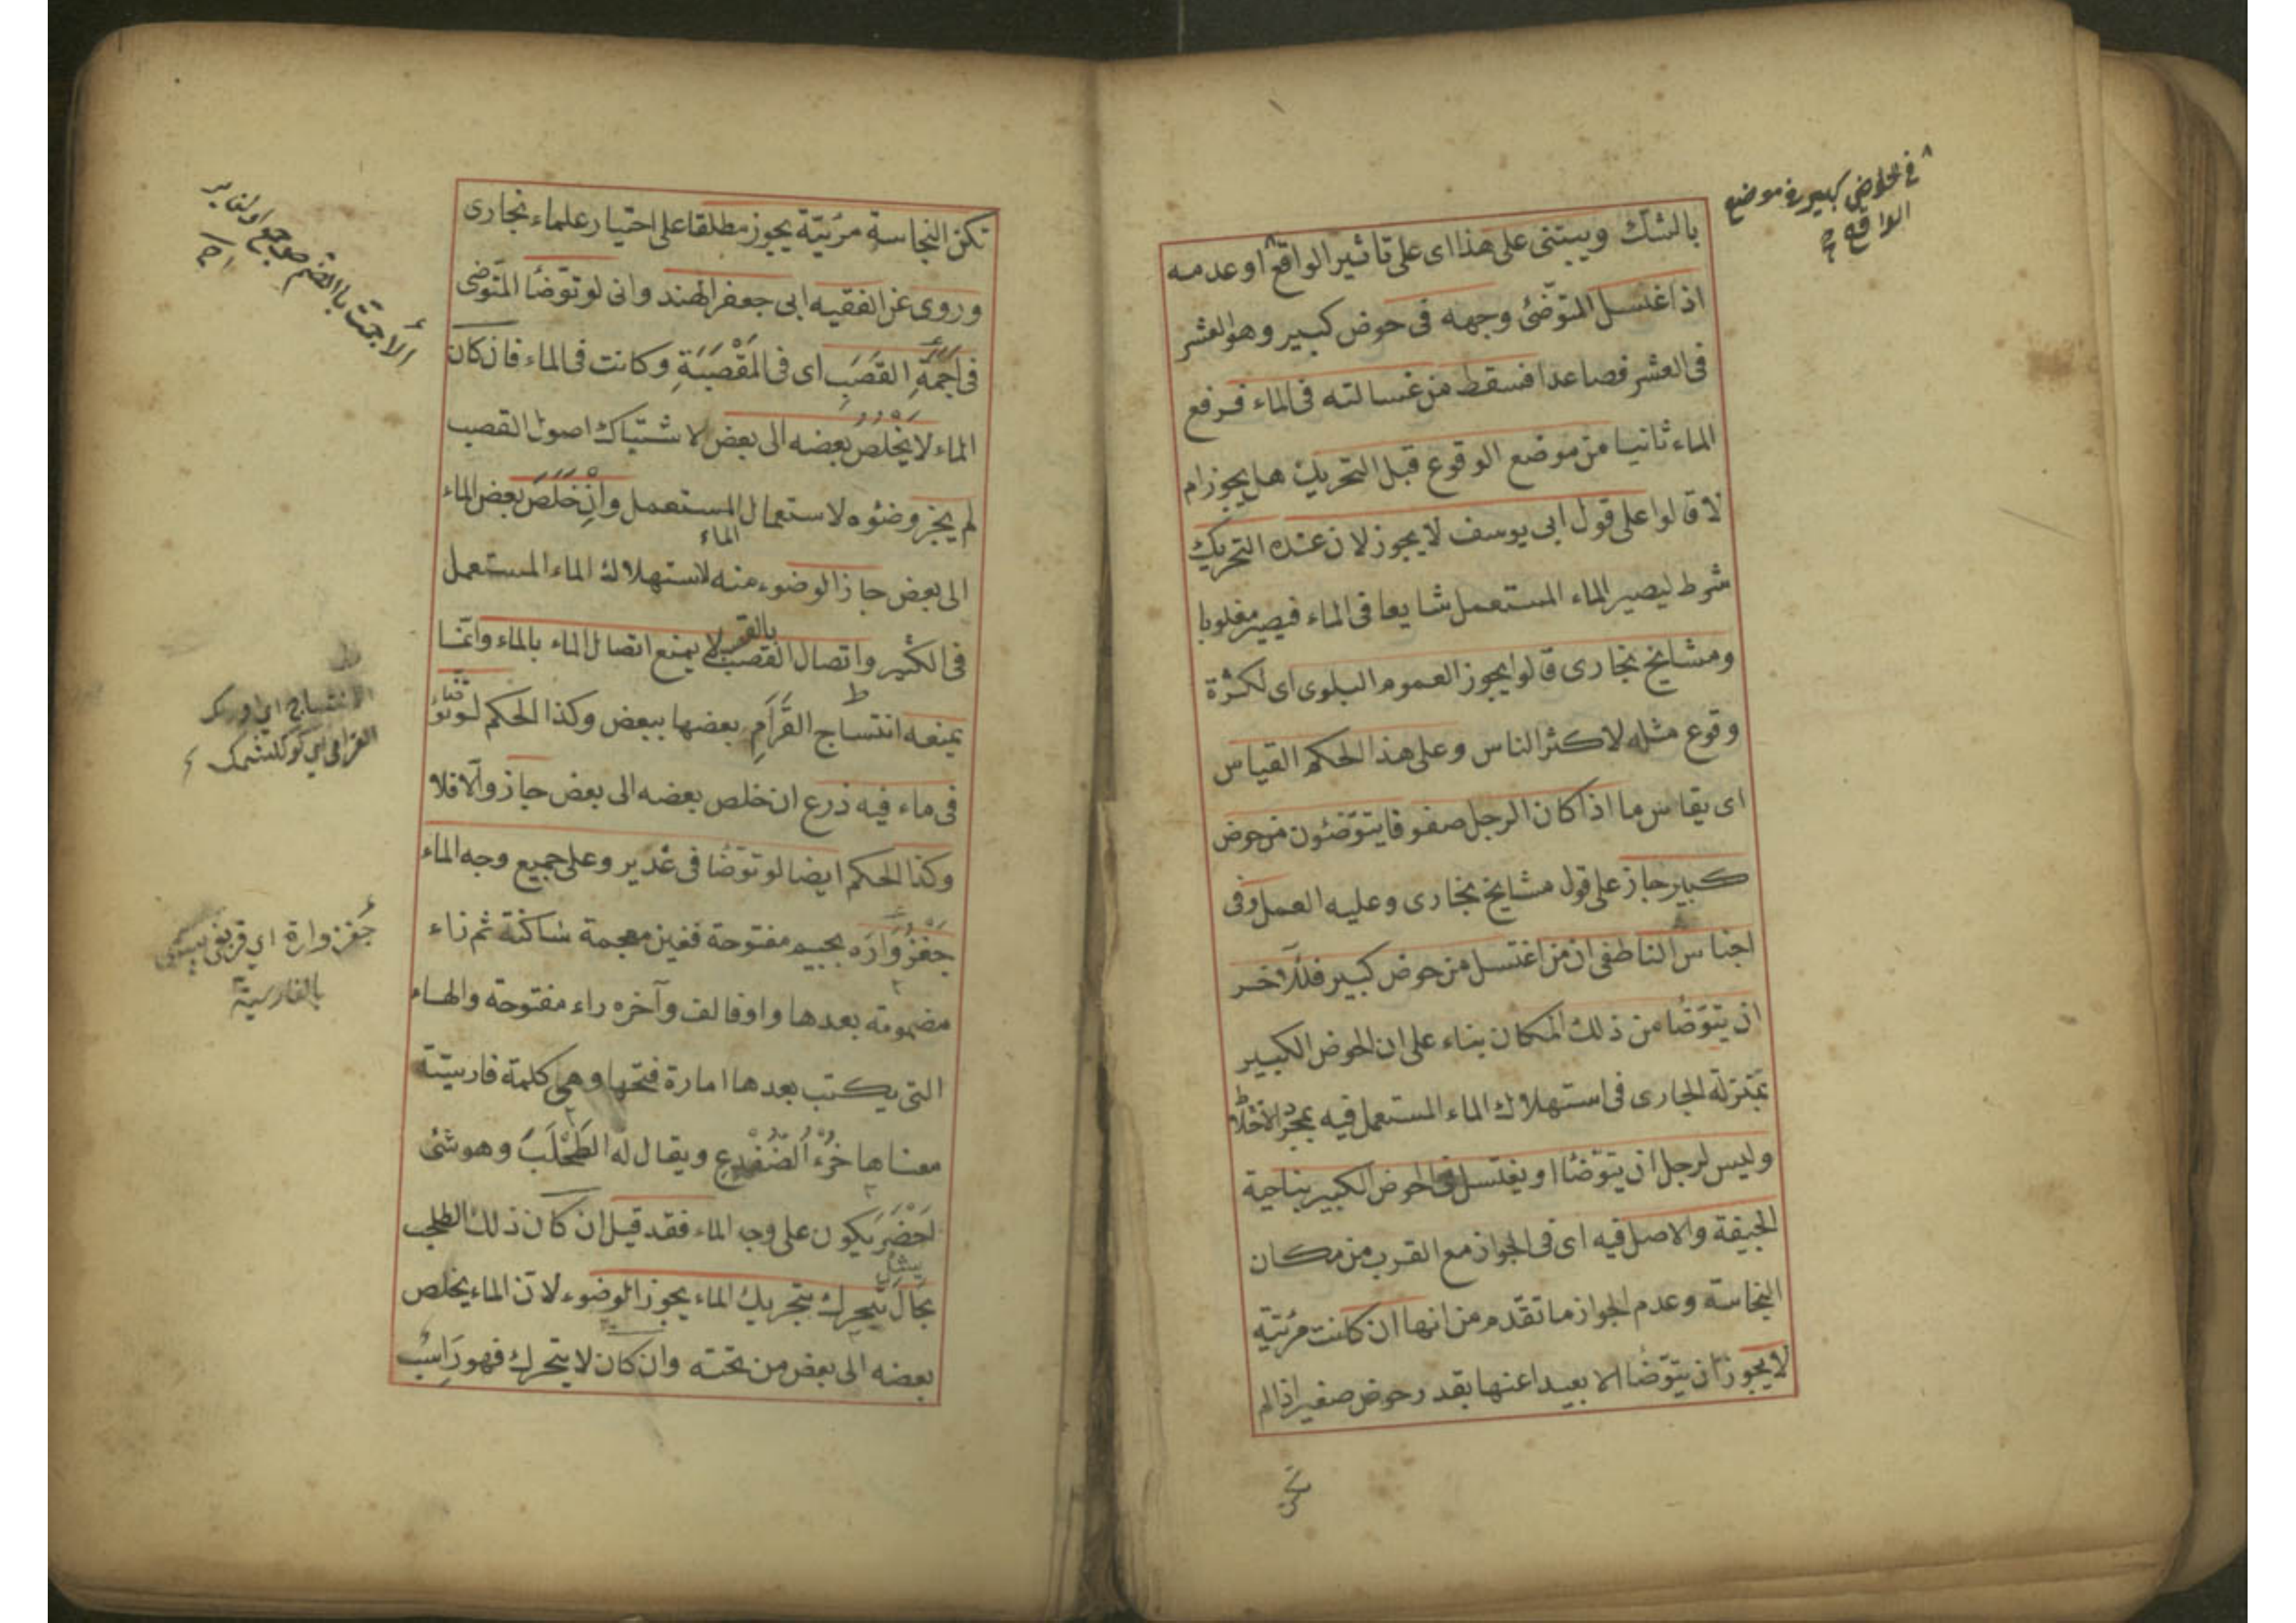 بالشك ويبتنى على هذا اى على تأثير الواقع او عدمه
اذا غتسل المتوضئ وجهه فى حوض كبير وهو العشر
فى العشر فصاعدا فسقط من غسالته فى الماء فرفع
الماء ثانيا من موضع الوقوع قبل التحريك هل يجوز ام
لا قالوا على قول ابى يوسف لا يجوز لان عنده التحريك
شرط ليصير الماء المستعمل شايعا فى الماء فيصير مغلوبا
ومشايخ بخارى قالوا يجوز العموم البلوى اى لكثرة
وقوع مثله لاكثر الناس وعلى هذا الحكم القياس
اى يقاس ما اذا كان الرجل صفوفا يتوضئون من حوض
كبير جاز على قول مشايخ بخارى وعليه العمل وفى
اجناس الناطفى ان من اغتسل من حوض كبير فللآخر
ان يتوضأ من ذلك المكان بناء على ان الحوض الكبير
بمنزلة الجارى فى استهلاك الماء المستعمل فيه بمجرد الاختلاط
وليس لرجل ان يتوضأ او يغتسل فى الحوض الكبير بناحية
الجيفة والاصل فيه اى فى الجواز مع القرب من مكان
النجاسة وعدم الجواز ما تقدم من انها ان كانت مرئية
لا يجوز ان يتوضأ الا بعيدا عنها بقدر حوض صغير اذ الم
تكن
فى الحوض كبير فى موضع
الواقع
تكن النجاسة مرئية يجوز مطلقا على اختيار علماء بخارى
وروى عن الفقيه ابى جعفر الهند وانى لو توضأ المتوضى
فى اَجَمَةِ القَصَبِ اى فى المَقْصَبَةِ وكانت فى الماء فان كان
الماء لا يَخْلُصُ بعضه الى بعض لا شتباك اصول القصب
لم يجز وضوئه لاستعمال المستعمل وانْ خَلَصَ بعض الماء
الماء
الى بعض جاز الوضوء منه لاستهلاك الماء المستعمل
فى الكثير واتصال القصب بالقصب لا يمنع اتصال الماء بالماء وانما
يمنعه انتساج القَرَامِ بعضها ببعض وكذا الحكم لو توضأ
فى ماء فيه زرع ان خلص بعضه الى بعض جاز والا فلا
وكذا الحكم ايضا لو توضأ فى غدير وعلى جميع وجه الماء
جَغْزُوَارَه بجيم مفتوحة فغين معجمة ساكنة ثم زاء
مضمومة بعدها واو فالف وآخره راء مفتوحة والهاء
التى يكتب بعدها امارة فتحها وهى كلمة فارسية
معناها خُرْءُ الضُفْدِعِ ويقال له الطُحْلَبَ وهو شئ
اَخْضَر يكون على وجه الماء فقد قيل ان كان ذلك الطحلب
بحال يتحرك بتحريك الماء يجوز الوضوء لان الماء يخلص
بعضه الى بعض من تحته وان كان لا يتحرك فهو رَاسُب
الأجمة بالضم
الانتساج اى
جُغزواره اى
بالفارسية